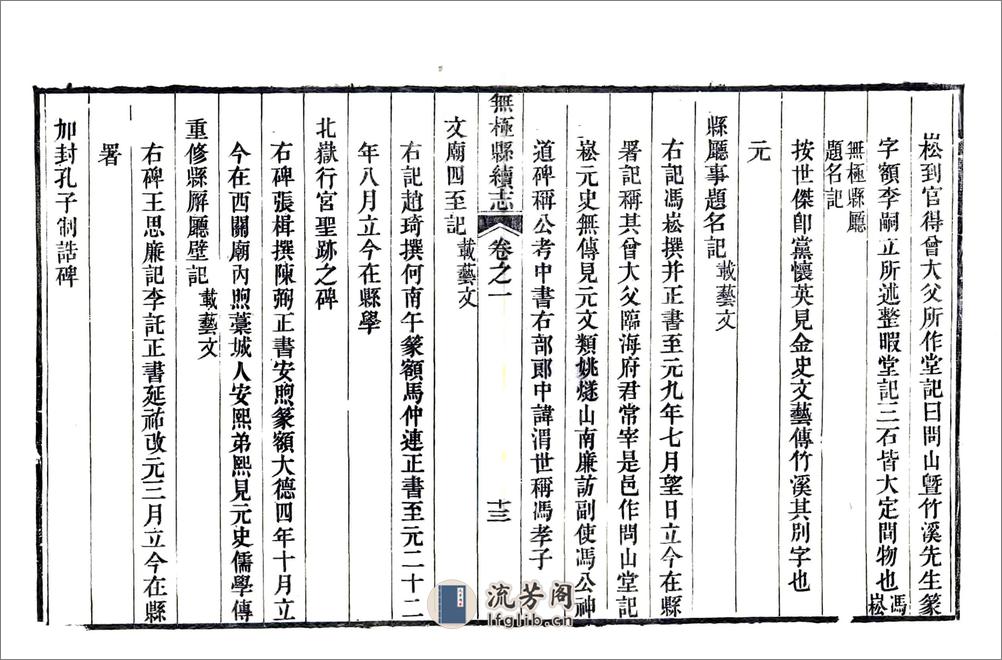 崧到官得曾大父所作堂記曰問山暨竹溪先生篆
字額李嗣立所述整暇堂記三石皆大定間物也馮崧
無極縣廳
題名記
按世傑卽黨懷英見金史文藝傳竹溪其別字也
元
縣廳事題名記載藝文
右記馮崧撰并正書至元九年七月望日立今在縣
署記稱其曾大父臨海府君常宰是邑作問山堂記
崧元史無傳見元文類姚燧山南廉訪副使馮公神
道碑稱公考中書右部郎中諱渭世稱馮孝子
無極縣續志 卷之一 十三
文廟四至記載藝文
右記趙琦撰何南午篆額馬仲連正書至元二十二
年八月立今在縣學
北嶽行宮聖跡之碑
右碑張楫撰陳弼正書安煦篆額大德四年十月立
今在西關廟內煦藁城人安熙弟熙見元史儒學傳
重修縣廨廳壁記載藝文
右碑王思廉記李託正書延祐改元三月立今在縣
署
加封孔子制誥碑
流芳阁
lfglib.cn